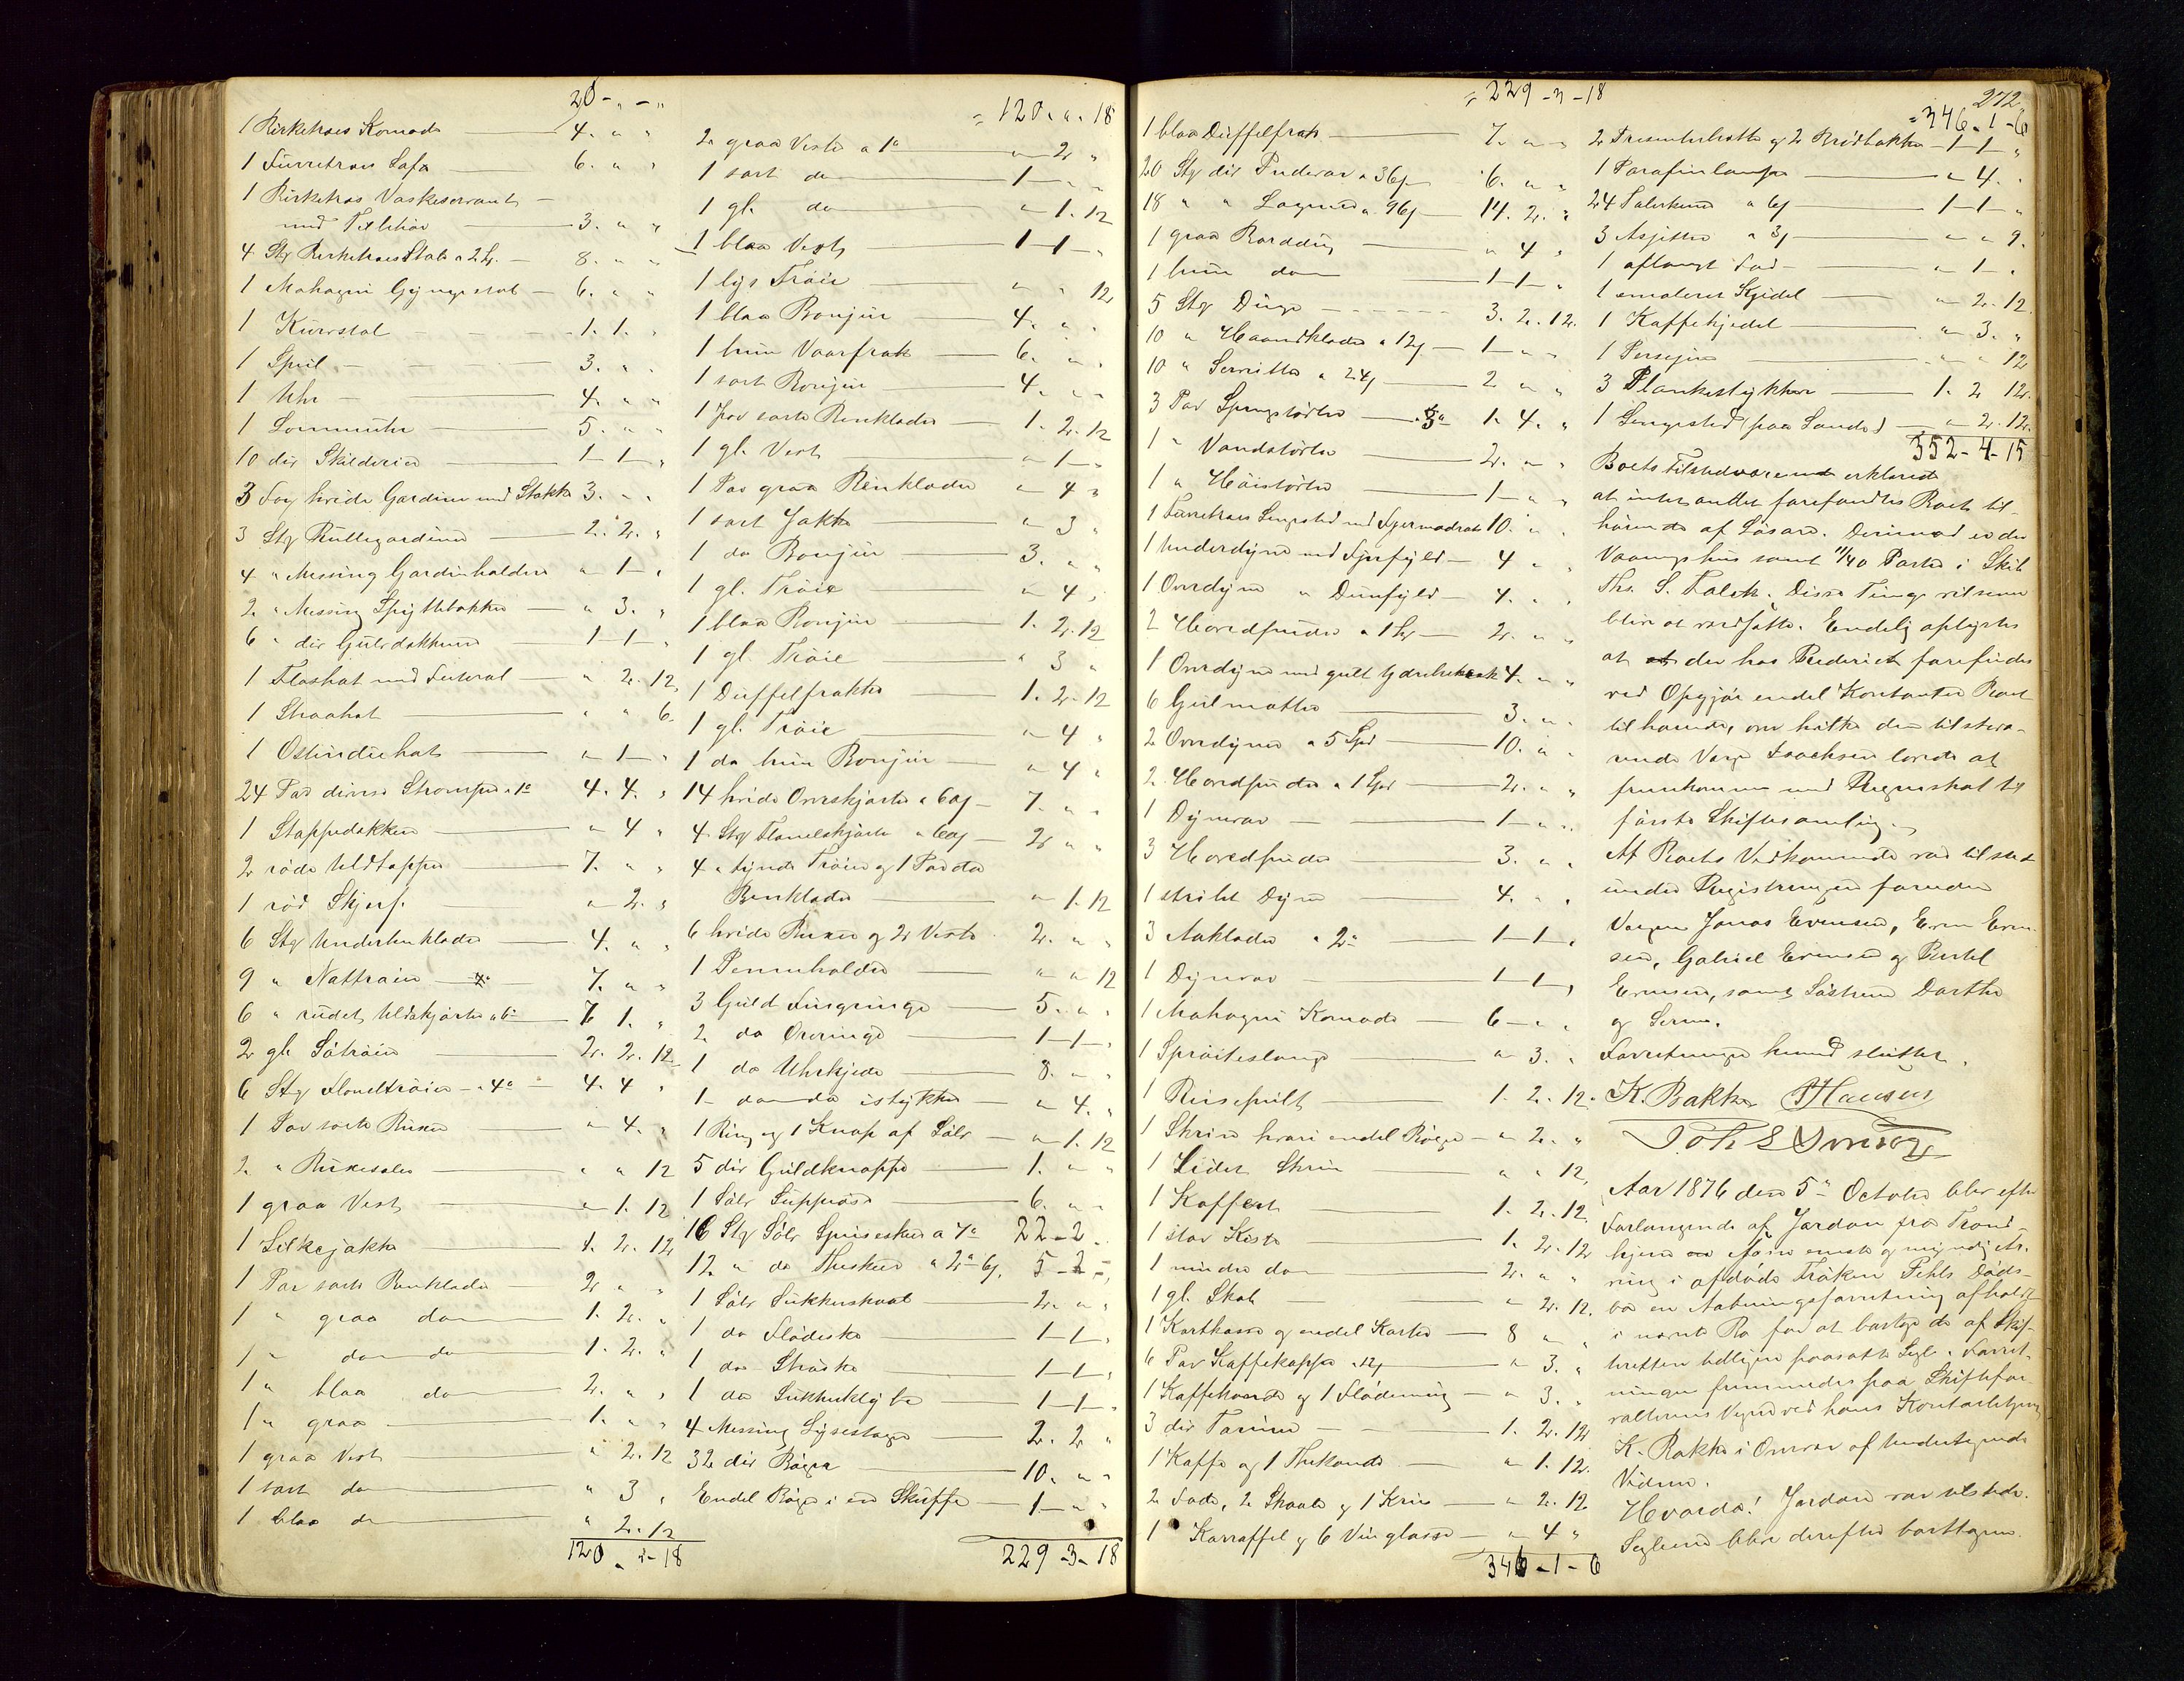 20 - „ - „
1 Birketræs Komode 4. „ „
1 Furretræs Sofa 6. „ „
1 Birketræs Vaskeservant
med Tilbehør 3. „ „
4 Stk Birketræs Stole a 2 Sp. 8. „ „
1 Mahogni Gyngestol 6. „ „
1 Kurvstol 1. 1. „
1 Speil 3. „ „
1 Uhr 4. „ „
1 Lommeuhr 5. „ „
10 div Skilderier 1 - 1 „
3 Fag hvide Gardiner med Stokke 3. „ „
3 Stk Rullegardiner 2. 2. „
4 „ Messing Gardinholdere „ 1 „
2 „ Messing Spyttebakker „ 3. „
6 „ div Gulvdækkener 1 - 1 „
1 Floshat med Futeral „ 2. 12
1 Straahat „ „ 6
1 Ostindiehat „ 1 „
24 Par diverse Strømper a 1 4. 4. „
1 Stoppedækken „ 4 „
2 røde Uldtæpper 7. „ „
1 rød Skjerf „ 2. „
6 Stk Underbenklæder 4. „ „
9 „ Nattrøier 7. „ „
6 „ rudet Uldskjorter a 6 7 1. „
2 gl. Søtrøier 2. 2. 12
6 Stk Floneltrøier a 4 4. 4 „
1 Par sorte Buxer „ 4. „
2 „ Buxeseler „ „ 12
1 graa Vest „ 1. 12
1 Silkejakke 1. 2. 12
1 Par sorte Benklæder 2 „ „
1 „ graa do 1. 2. „
1 „ do do 1. 2. „
1 „ blaa do 2. „ „
1 „ graa 1. „ „
1 graa Vest „ 2. 12
1 sort do „ 3 „
1 blaa do „ 2. 12
120 „ - 18
= 120. „. 18
2 graa Veste a 1 „ 2 „
1 sort do 1 „ „
1 gl. do „ 1. 12
1 blaa Vest 1 - 1 „
1 lys Trøie „ „ 12
1 blaa Bonjur 4. „ „
1 brun Vaarfrak 6. „ „
1 sort Bonjur 4. „ „
1 par sorte Benklæder 1. 2. 12
1 gl. Vest „ 1 „
1 Par graa Benklæder „ 4 „
1 sort Jakke „ 3 „
1 do Bonjur 3. „ „
1 gl. Trøie „ 4 „
1 blaa Bonjur 1. 2. 12
1 gl. Trøie „ 3 „
1 Duffelfrakke 1. 2. 12
1 gl. Trøie „ 4 „
1 do brun Bonjur „ 4 „
14 hvide Overskjorter a 60 s 7. „ „
4 Stk Flonelskjorter a 60 s 2 „ „
4 „ tynde Trøier og 1 Par do
Benklæder „ 1. 12
6 hvide Buxer og 2 Veste 2. „ „
1 Penneholder „ „ 12
3 Guld Fingringe 5. „ „
2 do Øreringe 1 - 1 „
1 do Uhrkjede 8. „ „
1 do do istykker „ 4. „
1 Ring og 1 Knap af Sølv „ 1. 12
5 div Guldknapper 1. „ „
1 Sølv Suppeøse 6. „ „
16 Stk Sølv Spiseskeer a 7 22 - 2 „
12 „ do Theskeer a 2 - 6 s 5 - 2 -
1 Sølv Sukkerskaal 2. „ „
1 do Flødeske 1 - 1 „
1 do Strøske 1 - 1 „
1 do Sukkerklype 1 - 1 „
4 Messing Lysestager 2. 2 „
32 div Bøger 10. „ „
Endel Bøger i en Skuffe 1 „ „
229 - 3 - 18
= 229 - 3 - 18
1 blaa Duffelfrak 7. „ „
20 Stk div Pudevar a 36 s 6. „ „
18 „ „ Lagener a 96 s 14. 2. „
1 graa Borddug „ 4 „
1 brun do 1 - 1 „
5 Stk Duge 3. 2. 12.
10 „ Haandklæder a 12 s 1 „ „
10 „ Servietter a 24 s 2 „ „
3 Par Springstøvler 1. 4. „
1 „ Vandstøvler 2. „ „
1 „ Høistøvler 1 „ „
1 Furretræs Sengested med Fjermadrats 10. „ „
1 Underdyne med Fjerfyld 4 „ „
1 Overdyne „ Dunfyld 4. „ „
2 Hovedpuder a 1 Sp 2. „ „
1 Overdyne med gult 4. „ „
6 Gulmatter 3. „ „
2 Overdyner a 5 Spd 10. „ „
2 Hovedpuder a 1 Spd 2. „ „
1 Dynevar 1 „ „
3 Hovedpuder 3. „ „
1 stribt Dyne 4. „ „
3 Aaklæder a 2 1 - 1 „
1 Dynevar 1 - 1 „
1 Mahogni Komode 6 „ „
1 Sprøiteslange „ 3. „
1 Reisepult 1. 2. 12.
1 Skrin hvori endel Bøger „ 2. „
1 Lidet Skrin „ „ 12
1 Kuffert 1. 2. 12
1 stor Kiste 1. 2. 12
1 mindre do 2. „ „
1 gl. Skab „ 2. 12.
1 Kortkasse og endel Karter 8 „ „
6 Par Kaffekopper a 12 s „ 3. „
1 Kaffekande og 1 Flødemug „ 3. „
3 div Tøiner 1. 2. 12
1 Kaffe og 1 Thekande „ 1. 12.
2 Fade, 2 Skaale og 1 Krus „ 2. 12
1 Karraffel og 6 Vinglasse „ 4 „
346 - 1 - 6
272
= 346. 1 - 6
2 Presenterbrætte og 2 Brødbakker 1 - 1 „
1 Parafinlampe „ 4. „
24 Talerkener a 6 s 1 - 1 „
3 Asjetter a 3 s „ „ 9.
1 aflangt Fad „ 1 „
1 emaleret Kjedel „ 2. 12
1 Kaffekjedel „ 3. „
1 „ „ 12
3 Plankestykker 1. 2 12.
1 Sengested (paa Lander) „ 2. 12.
352 - 4 - 15
Boets Tilstedeværende erklærede
at intet andet forefandtes Boet til-
hørende af Løsøre. Derimod er der
Vaaningshus samt 11/40 Parter i Skib
Ths. S. Falck. Disse Ting vil senere
blive at værdsætte. Endelig oplystes
at der hos Rederiet forefindes
ved Opgjør endel Kontanter Boet
tilhørende, om hvilke den tilstede-
rende Verge Isachsen lovede at
fremkomme med Regnskab til
første Skiftesamling.
Af Boets Vedkommende var tilstede
under Registreringen foruden
Vergen Jonas Evensen, Even Even-
sen, Gabriel Evensen og Bertel
Evensen, samt Søstrene Dorthe
og Serine.
Forretningen hermed sluttet.
K. Bakke PHansen
Aar 1876 den 5te October blev efter
Forlangende af Jordan fra Trond-
hjem som eneste og myndig Ar-
ving i afdøde Frøken Pihls Døds-
bo en Aabningsforretning afholdt
i nævnte Bo for at borttage de af Skif-
teretten tidligere paasatte Segl. Forret-
ningen fremmedes paa Skiftefor-
valterens Vegne ved hans Kontorbetjent
K. Bakke i Overvær af undertegnede
Vidner.
Hvorda! Jordan var tilstede.
Seglene blev derefter borttagne.